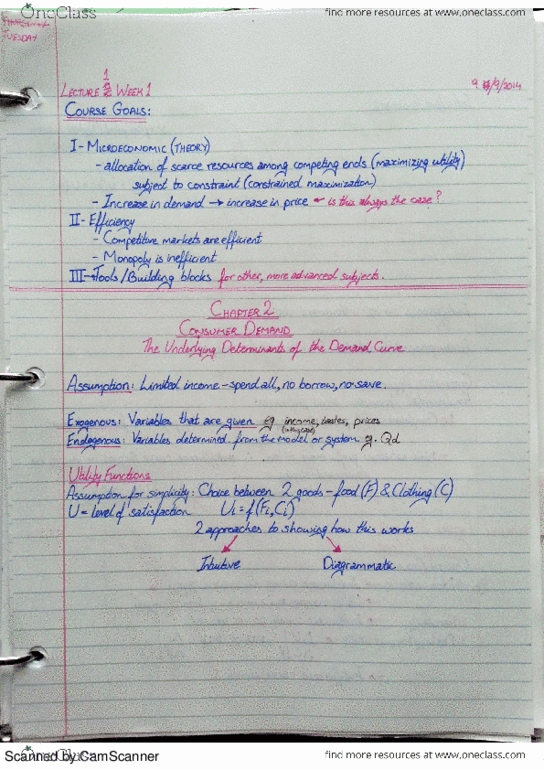 OneClass
find more resources at www.oneclass.com
TUESDAY
1
LECTURE & WEEK 1
9/9/2014
COURSE GOALS:
I - MICROECONOMIC (THEORY)
- allocation of scarce resources among competing ends (maximizing utility)
subject to constraint (constrained maximization)
- Increase in demand → increase in price ← is this always the case?
II - Efficiency
- Competitive markets are efficient
- Monopoly is inefficient
III → Tools/Building blocks for other, more advanced subjects.
CHAPTER 2
CONSUMER DEMAND
The Underlying Determinants of the Demand Curve
Assumption: Limited income - spend all, no borrow, no save.
Exogenous: Variables that are given eg income, tastes, prices
Endogenous: Variables determined from the model or system eg. Qd
Utility Functions
Assumption for simplicity: Choice between 2 goods - food (F) & Clothing (C)
U = level of satisfaction Ui = f(Fi, Ci)
2 approaches to showing how this works
Intuitive Diagrammatic
Scanned by CamScanner
OneClass
find more resources at www.oneclass.com